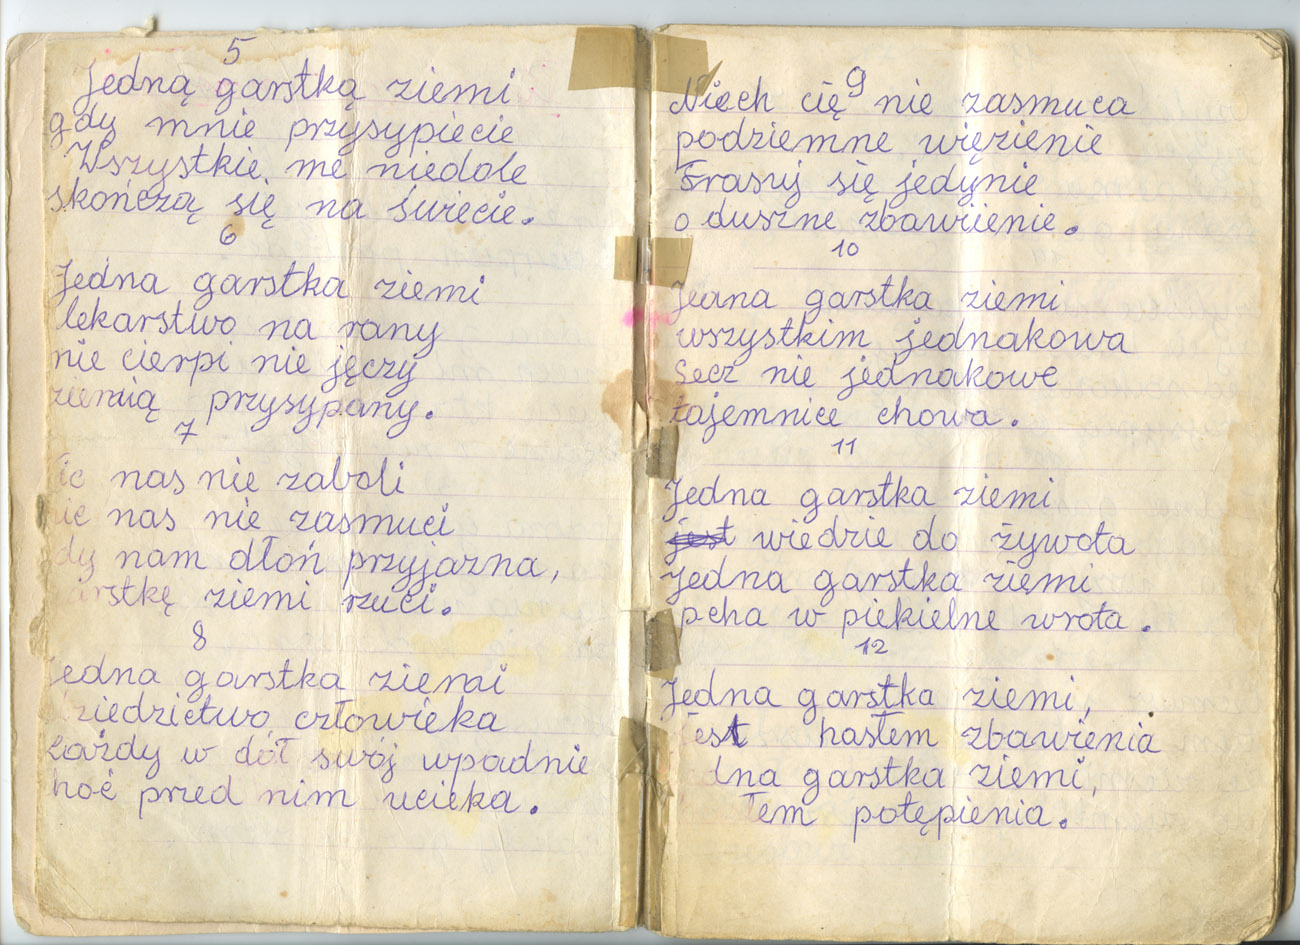 5
Jedną garstką ziemi
gdy mnie przysypiecie
Wszystkie me niedole
skończą się na świecie.
6
Jedna garstka ziemi
lekarstwo na rany
nie cierpi nie jęczy
ziemią przysypany.
7
ic nas nie zaboli
nic nas nie zasmuci
dy nam dłoń przyjazna,
arstkę ziemi rzuci.
8
jedna garstka ziemi
dziedzictwo człowieka
każdy w dół swój wpadnie
hoć przed nim ucieka.
9
Niech cię nie zasmuca
podziemne więzienie
Frasuj się jedynie
o duszne zbawienie.
10
Jedna garstka ziemi
wszystkim jednakowa
Lecz nie jednakowe
tajemnice chowa.
11
Jedna garstka ziemi
jest wiedzie do żywota
Jedna garstka ziemi
pcha w piekielne wrota.
12
Jedna garstka ziemi,
Jest hasłem zbawienia
edna garstka ziemi,
łem potępienia.